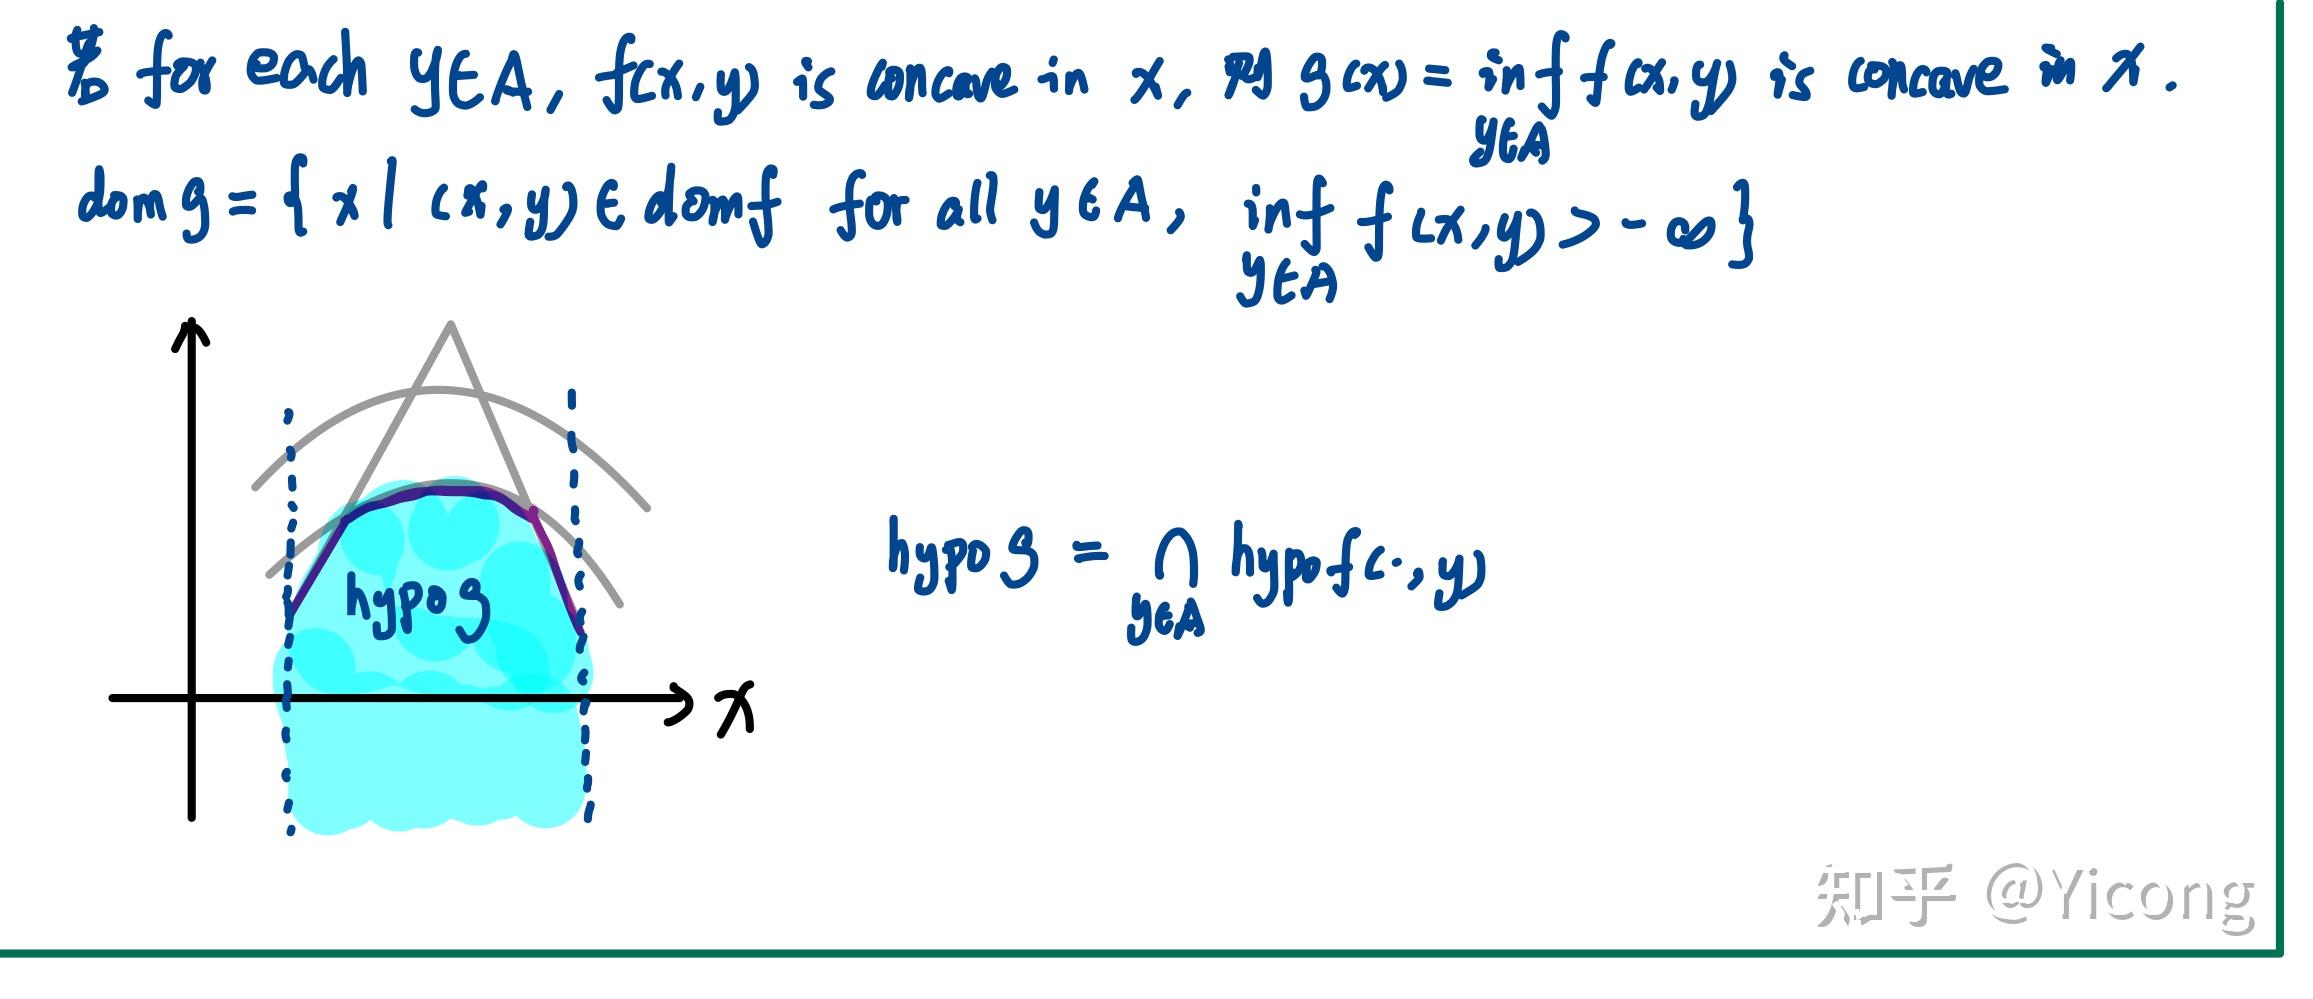 若 for each y∈A, f(x,y) is concave in x, 则 g(x) = inf f(x,y) is concave in x.
y∈A
dom g = { x | (x,y) ∈ domf for all y∈A, inf f(x,y) > -∞ }
y∈A
hypo g
hypo g = ∩ hypo f(·,y)
y∈A
x
知乎 @Yicong